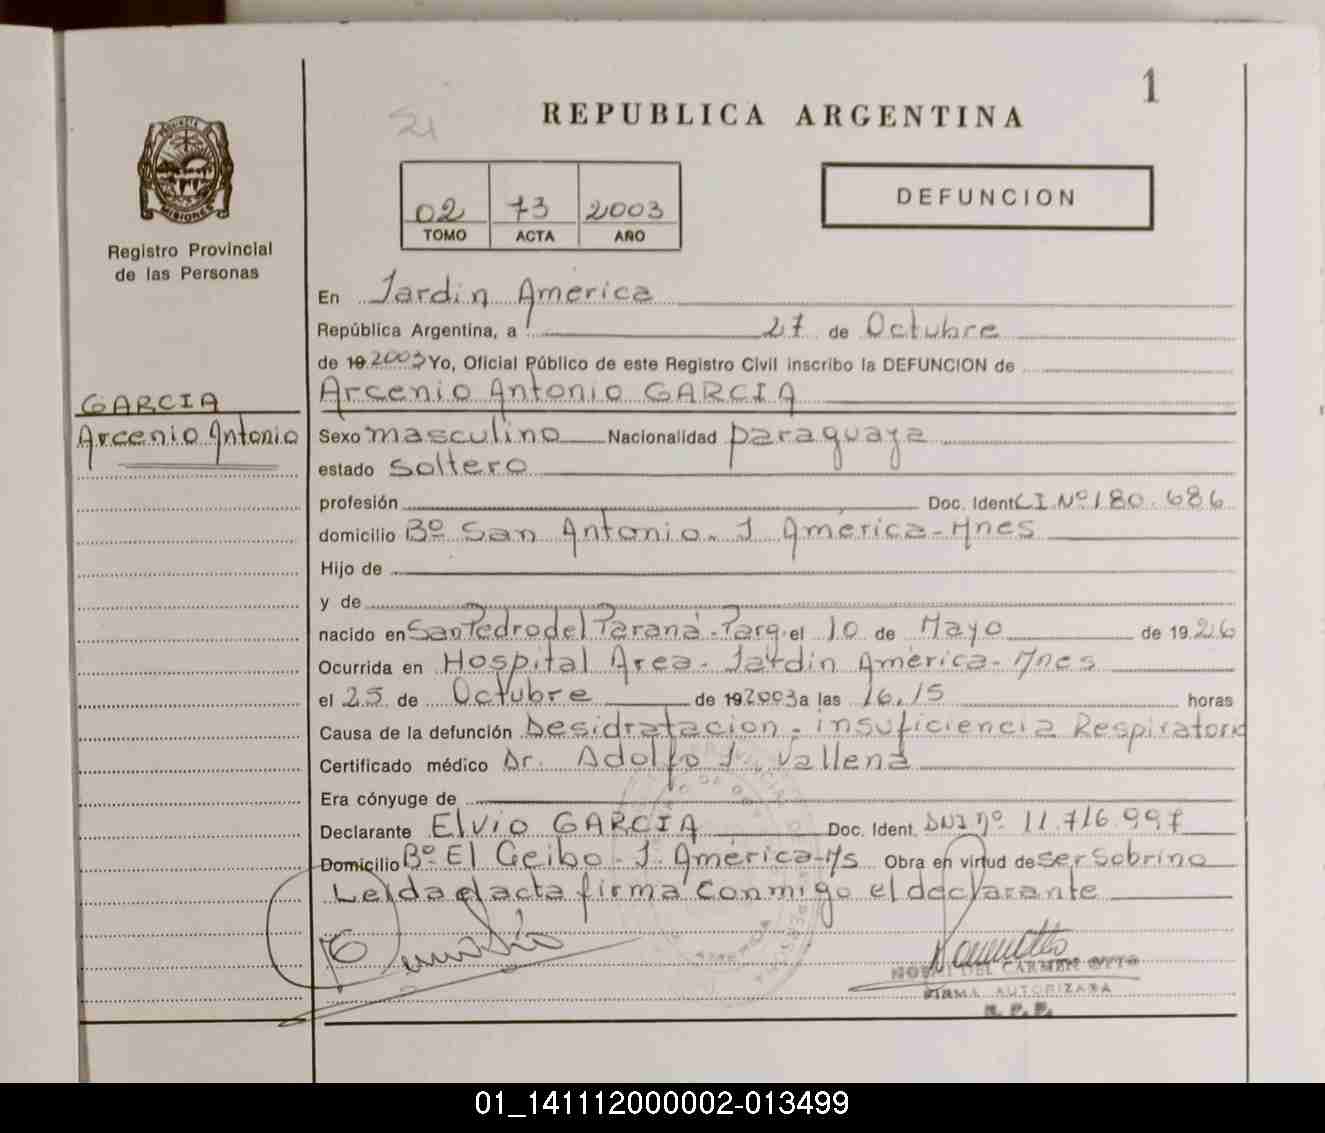 1
REPUBLICA ARGENTINA
21
02 73 2003
TOMO ACTA AÑO
DEFUNCION
PROVINCIA
MISIONES
Registro Provincial
de las Personas
GARCIA
Arcenio Antonio
En Jardin America
República Argentina, a 27 de Octubre
de 19 2003 Yo, Oficial Público de este Registro Civil inscribo la DEFUNCION de
Arcenio Antonio GARCIA
Sexo masculino Nacionalidad paraguaya
estado soltero
profesión Doc. Ident. C.I. Nº 180.686
domicilio Bº San Antonio. J. América-Mnes
Hijo de
y de
nacido en San Pedro del Paraná-Parg. el 10 de Mayo de 1926
Ocurrida en Hospital Area - Jardin América - Mnes
el 25 de Octubre de 19 2003 a las 16,15 horas
Causa de la defunción Desidratacion - insuficiencia Respiratoria
Certificado médico Dr. Adolfo J. Vallena
Era cónyuge de
Declarante Elvio GARCIA Doc. Ident. DNI Nº 11.716.997
Domicilio Bº El Ceibo - J. América-M/s Obra en virtud de ser sobrino
Leida el acta firma conmigo el declarante
DEL CARMEN OTTO
FIRMA AUTORIZADA
R. P. P.
01_141112000002-013499